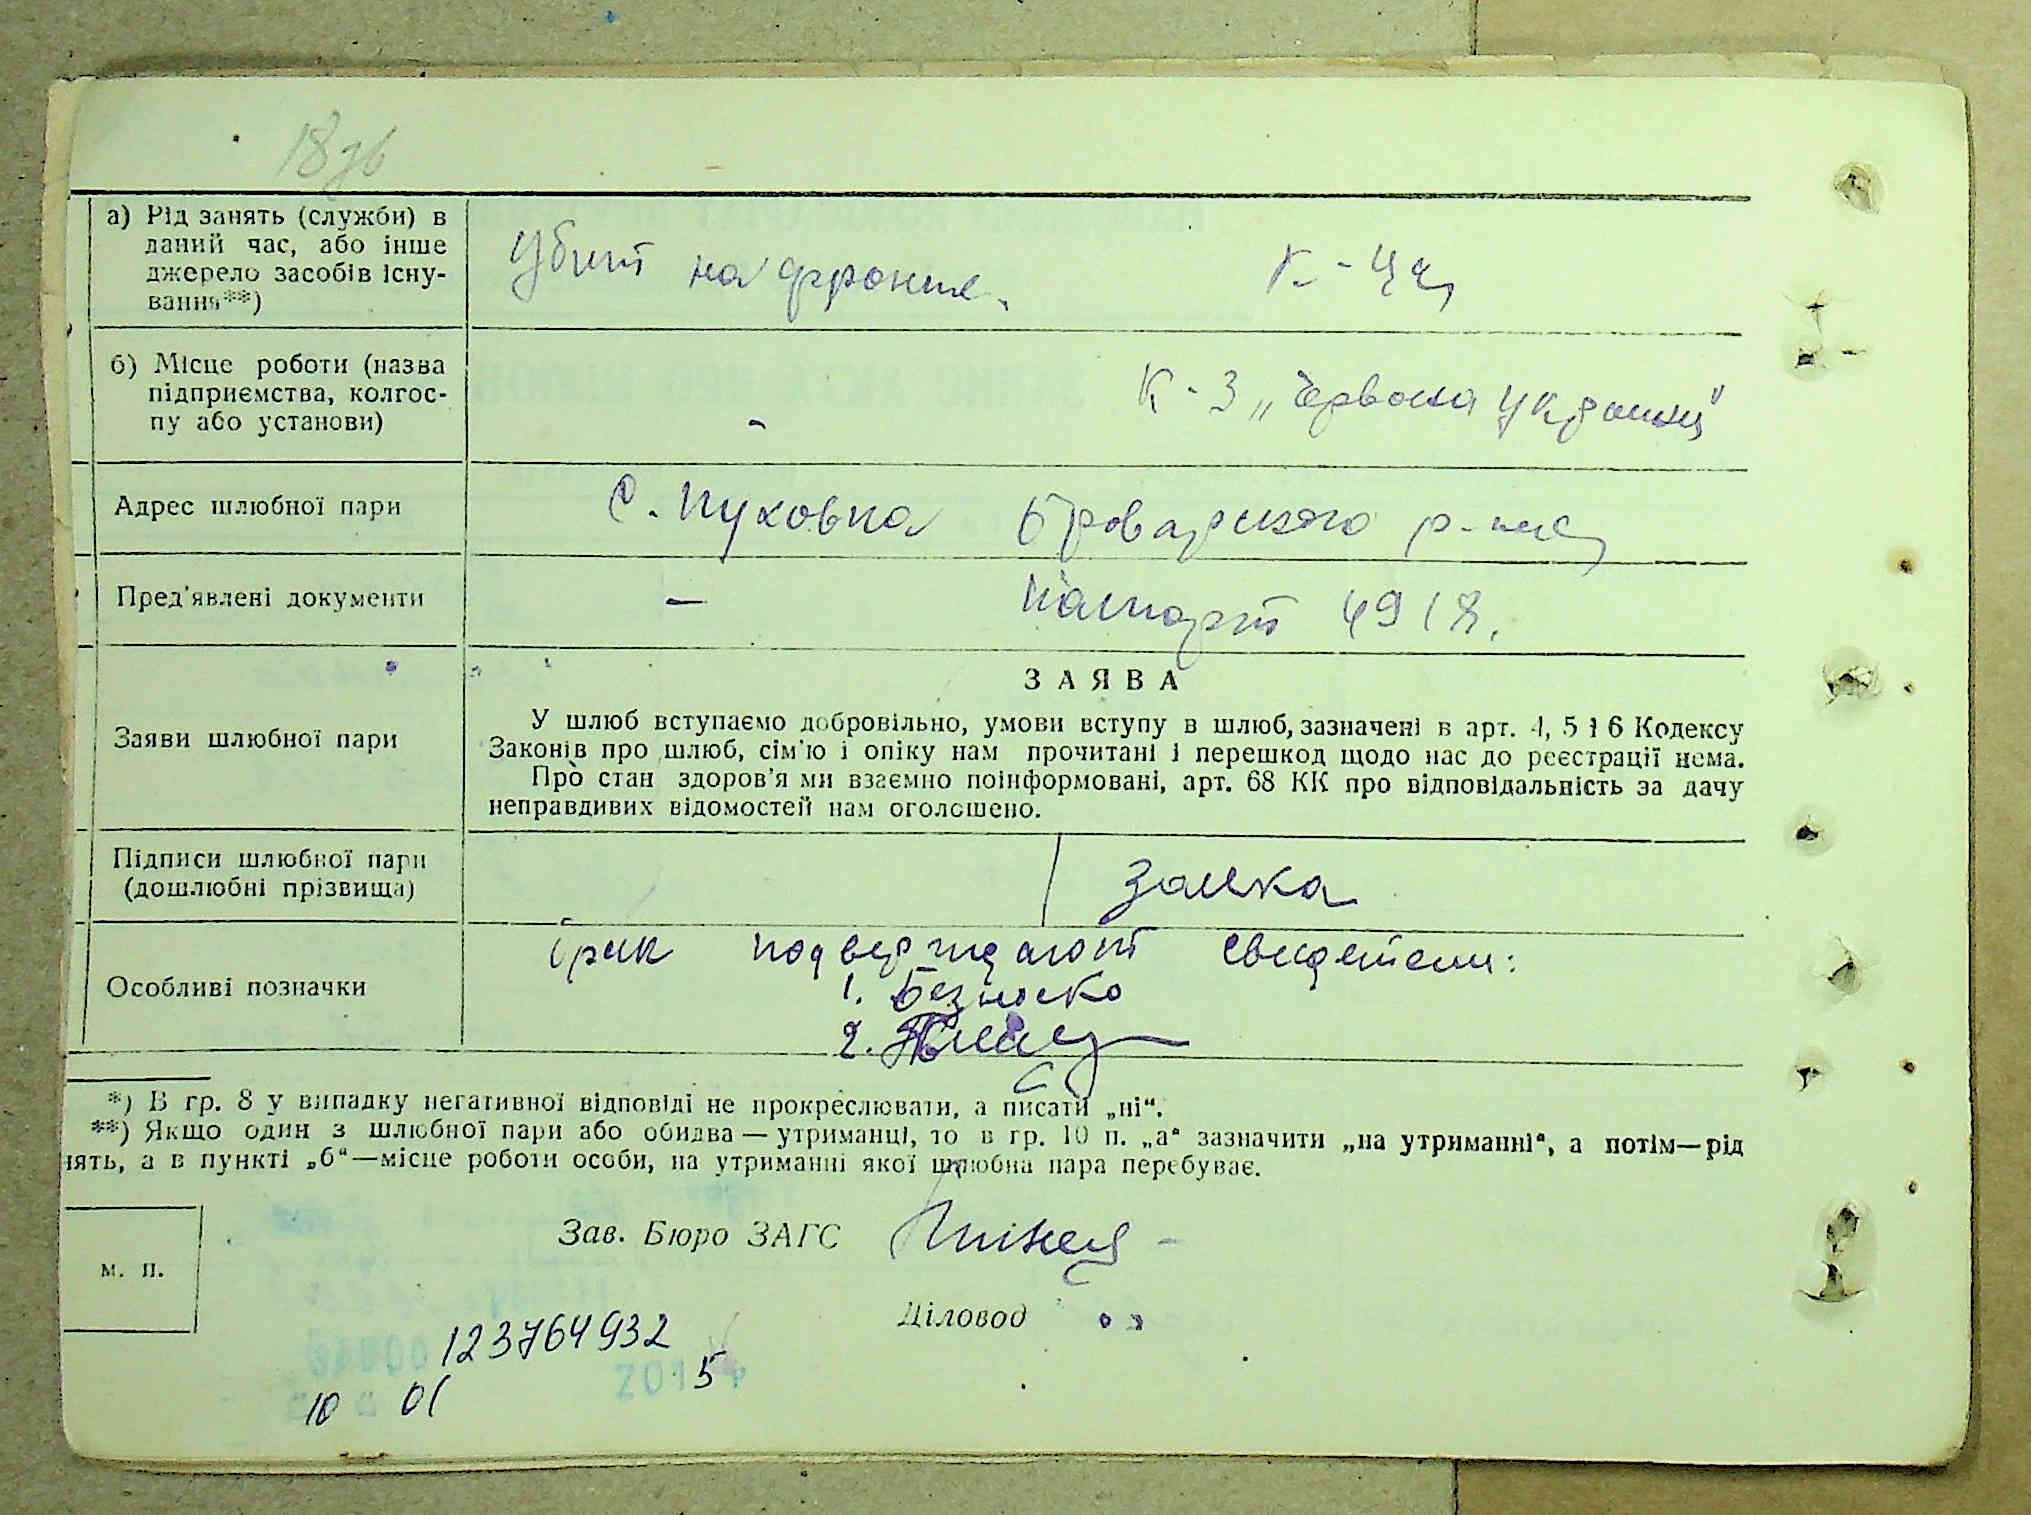 18зв
а) Рід занять (служби) в
даний час, або інше
джерело засобів існу-
вання**)
Убит на фронте.
К-ца
б) Місце роботи (назва
підприємства, колгос-
пу або установи)
-
К-З „Червона Україна"
Адрес шлюбної пари
С. Пуховка Броварского р-на
Пред'явлені документи
—
Паспорт
Заяви шлюбної пари
ЗАЯВА
У шлюб вступаємо добровільно, умови вступу в шлюб, зазначені в арт. 4, 5 і 6 Кодексу
Законів про шлюб, сім'ю і опіку нам прочитані і перешкод щодо нас до реєстрації нема.
Про стан здоров'я ми взаємно поінформовані, арт. 68 КК про відповідальність за дачу
неправдивих відомостей нам оголошено.
Підписи шлюбної пари
(дошлюбні прізвища)
Особливі позначки
брак подверждают свидетели:
1. Безноско
2.
*) В гр. 8 у випадку негативної відповіді не прокреслювати, а писати „ні“.
**) Якщо один з шлюбної пари або обидва — утриманці, то в гр. 10 п. „а“ зазначити „на утриманні“, а потім—рід
нять, а в пункті „б“—місце роботи особи, на утриманні якої шлюбна пара перебуває.
Зав. Бюро ЗАГС
м. п.
Діловод
123764932
10 01 201 5 р